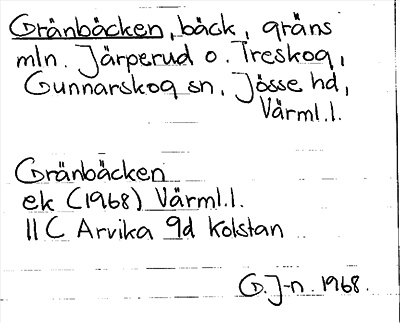 Gränbäcken, bäck, gräns
mln. Järperud o. Treskog,
Gunnarskog sn, Jösse hd,
Värml.l.
Gränbäcken
ek (1968) Värml.l.
11 C Arvika 9d Kolstan
G.J-n. 1968.